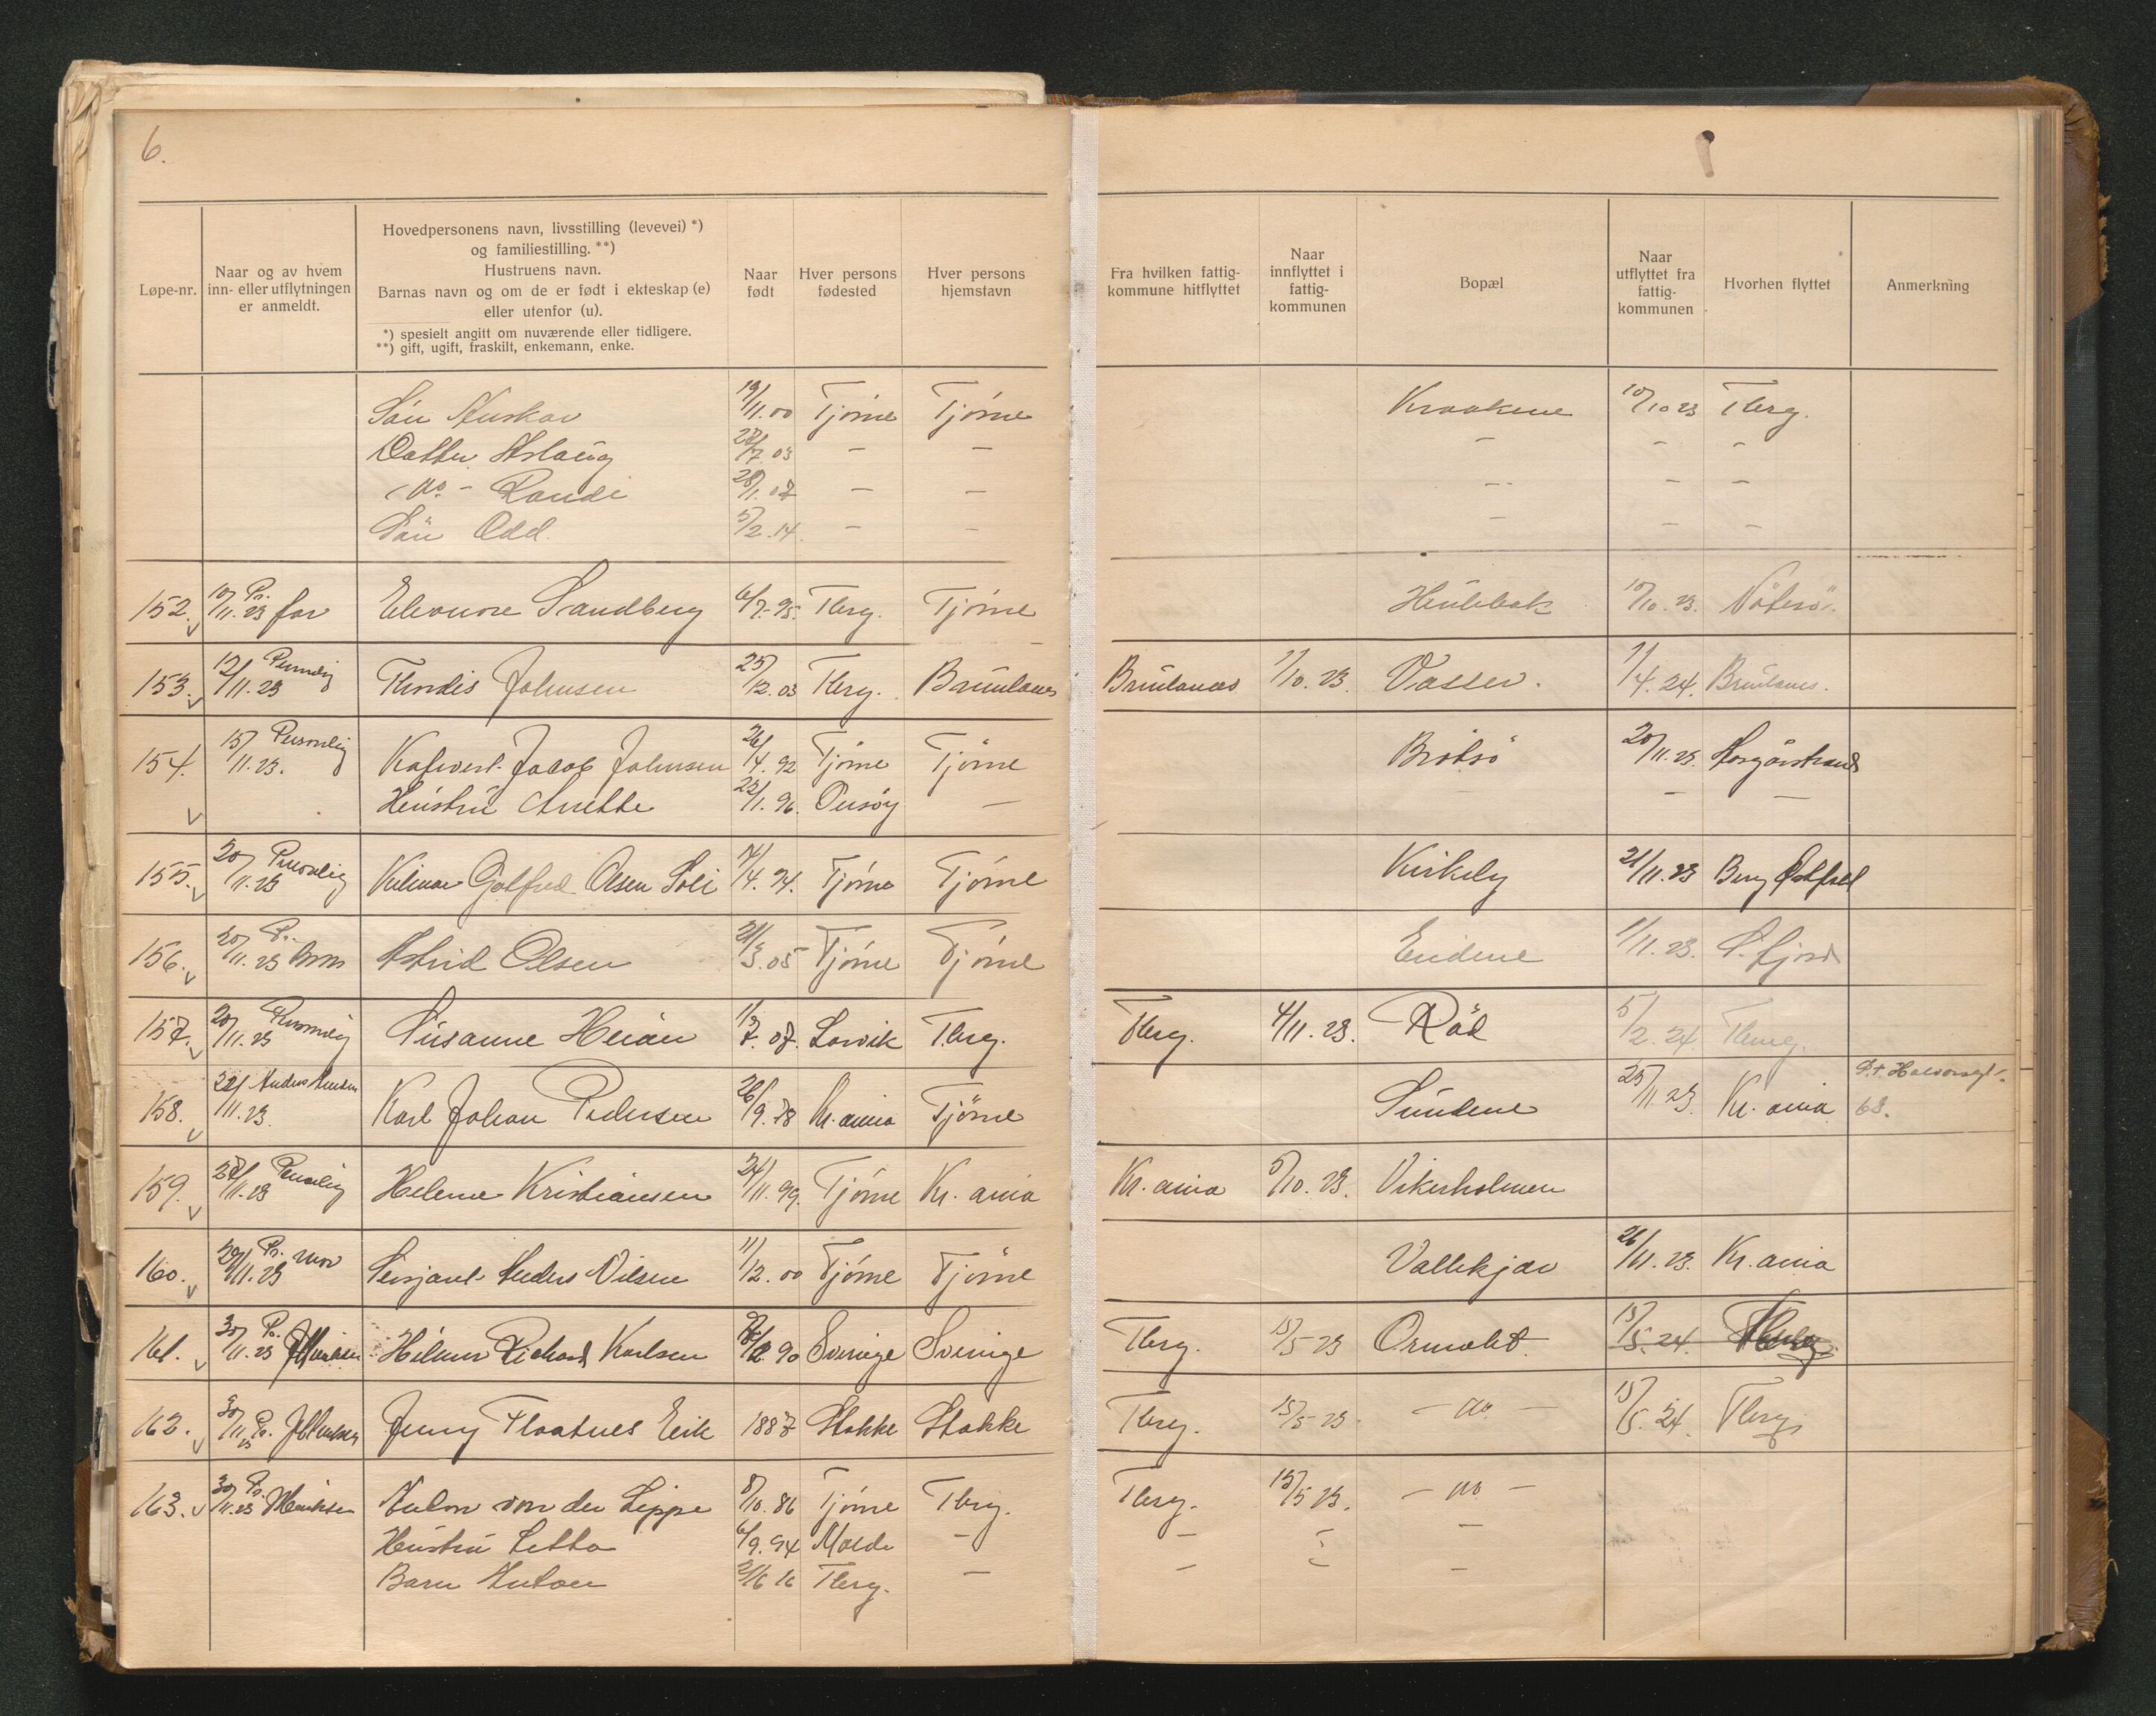 6.
Løpe-nr. | Naar og av hvem inn- eller utflytningen er anmeldt. | Hovedpersonens navn, livsstilling (levevei) *) og familiestilling. **) Hustruens navn. Barnas navn og om de er født i ekteskap (e) eller utenfor (u). *) spesielt angitt om nuværende eller tidligere. **) gift, ugift, fraskilt, enkemann, enke. | Naar født | Hver persons fødested | Hver persons hjemstavn | Fra hvilken fattig-kommune hitflyttet | Naar innflyttet i fattig-kommunen | Bopæl | Naar utflyttet fra fattig-kommunen | Hvorhen flyttet | Anmerkning
Sön Auskar 19/11.00 Tjöme Tjöme Kraakene 10/10 23 Tberg.
Datter Aslaug 22/7.03 — — — — —
-do- Randi 28/1.07 — — — — —
Sön Odd. 5/2.14. — — — — —
152. 10/11.23 Pr. far Eleonore Sandberg 6/7.95. Tberg. Tjöme Hulebak 10/10.23. Nöterö.
153. 12/11.23 Personlig Thordis Johnsen 25/12.03 Tberg. Brunlanes Brunlanes 1/10.23. Vasser. 1/4.24. Brunlanes.
154. 15/11.23. Personlig Jacob Johnsen 26/4.92 Tjöme Tjöme Brötsö 20/11.23. Horgörstrand
Hustru Anette 22/1.96. Onsöy — — —
155. 20/11.23 Personlig Hilmar Gotfred Olsen Soli 14/4.94. Tjöme Tjöme Kirkely 21/11.23 Berg Østfold
156. 20/11.23 Pr. Astrid Olsen 21/3.05 Tjöme Tjöme Eidene 1/11.23. S.fjord
157. 20/11.23 Personlig Susanne Heian 1/7.07. Larvik Tberg. Tberg. 4/11.23. Röd 5/2.24. Tberg.
158. 22/11.23. Karl Johan Pedersen 26/9.78 Kr.ania Tjöme Sundene 25/11 23. Kr.ania 68.
159. 27/11.23 Personlig Helene Kristiansen 24/11.99. Tjöme Kr.ania Kr.ania 5/10.23. Vikerholmen
160. 29/11.23 Pr. mor Serjant Anders Nilsen 11/12.00 Tjöme Tjöme Vallekjær 26/11.23. Kr.ania
161. 30/11.23 Pr. Hilmer Richard Karlsen 90 Sverige Sverige Tberg. 15/5 23 Ormelet 15/5.24.
162. 30/11.23 Pr. Jenny Flaatnes Eik 1887 Stokke Stokke Tberg. 15/5 23. — do — 15/5.24. Tberg.
163. 30/11.23 Pr. Anton von der Lippe 8/10.86 Tjöme Tberg. Tberg. 15/5 23. — do —
Hustru Letta 6/9.94 Molde — — — —
Barn Anton 16 Tberg. — — — —